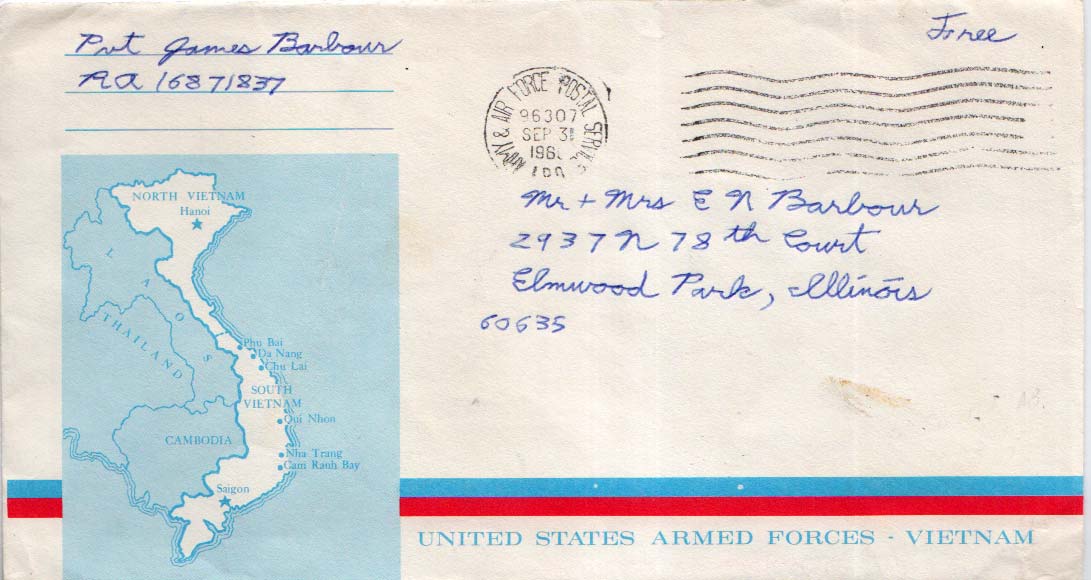 Pvt James Barbour
RA 16871837
Free
ARMY & AIR FORCE POSTAL SERVICE
96307
SEP 3
196
APO
Mr + Mrs E N Barbour
2937 N 78th Court
Elmwood Park, Illinois
60635
NORTH VIETNAM
Hanoi
LAOS
THAILAND
Phu Bai
Da Nang
Chu Lai
SOUTH
VIETNAM
Qui Nhon
CAMBODIA
Nha Trang
Cam Ranh Bay
Saigon
UNITED STATES ARMED FORCES - VIETNAM